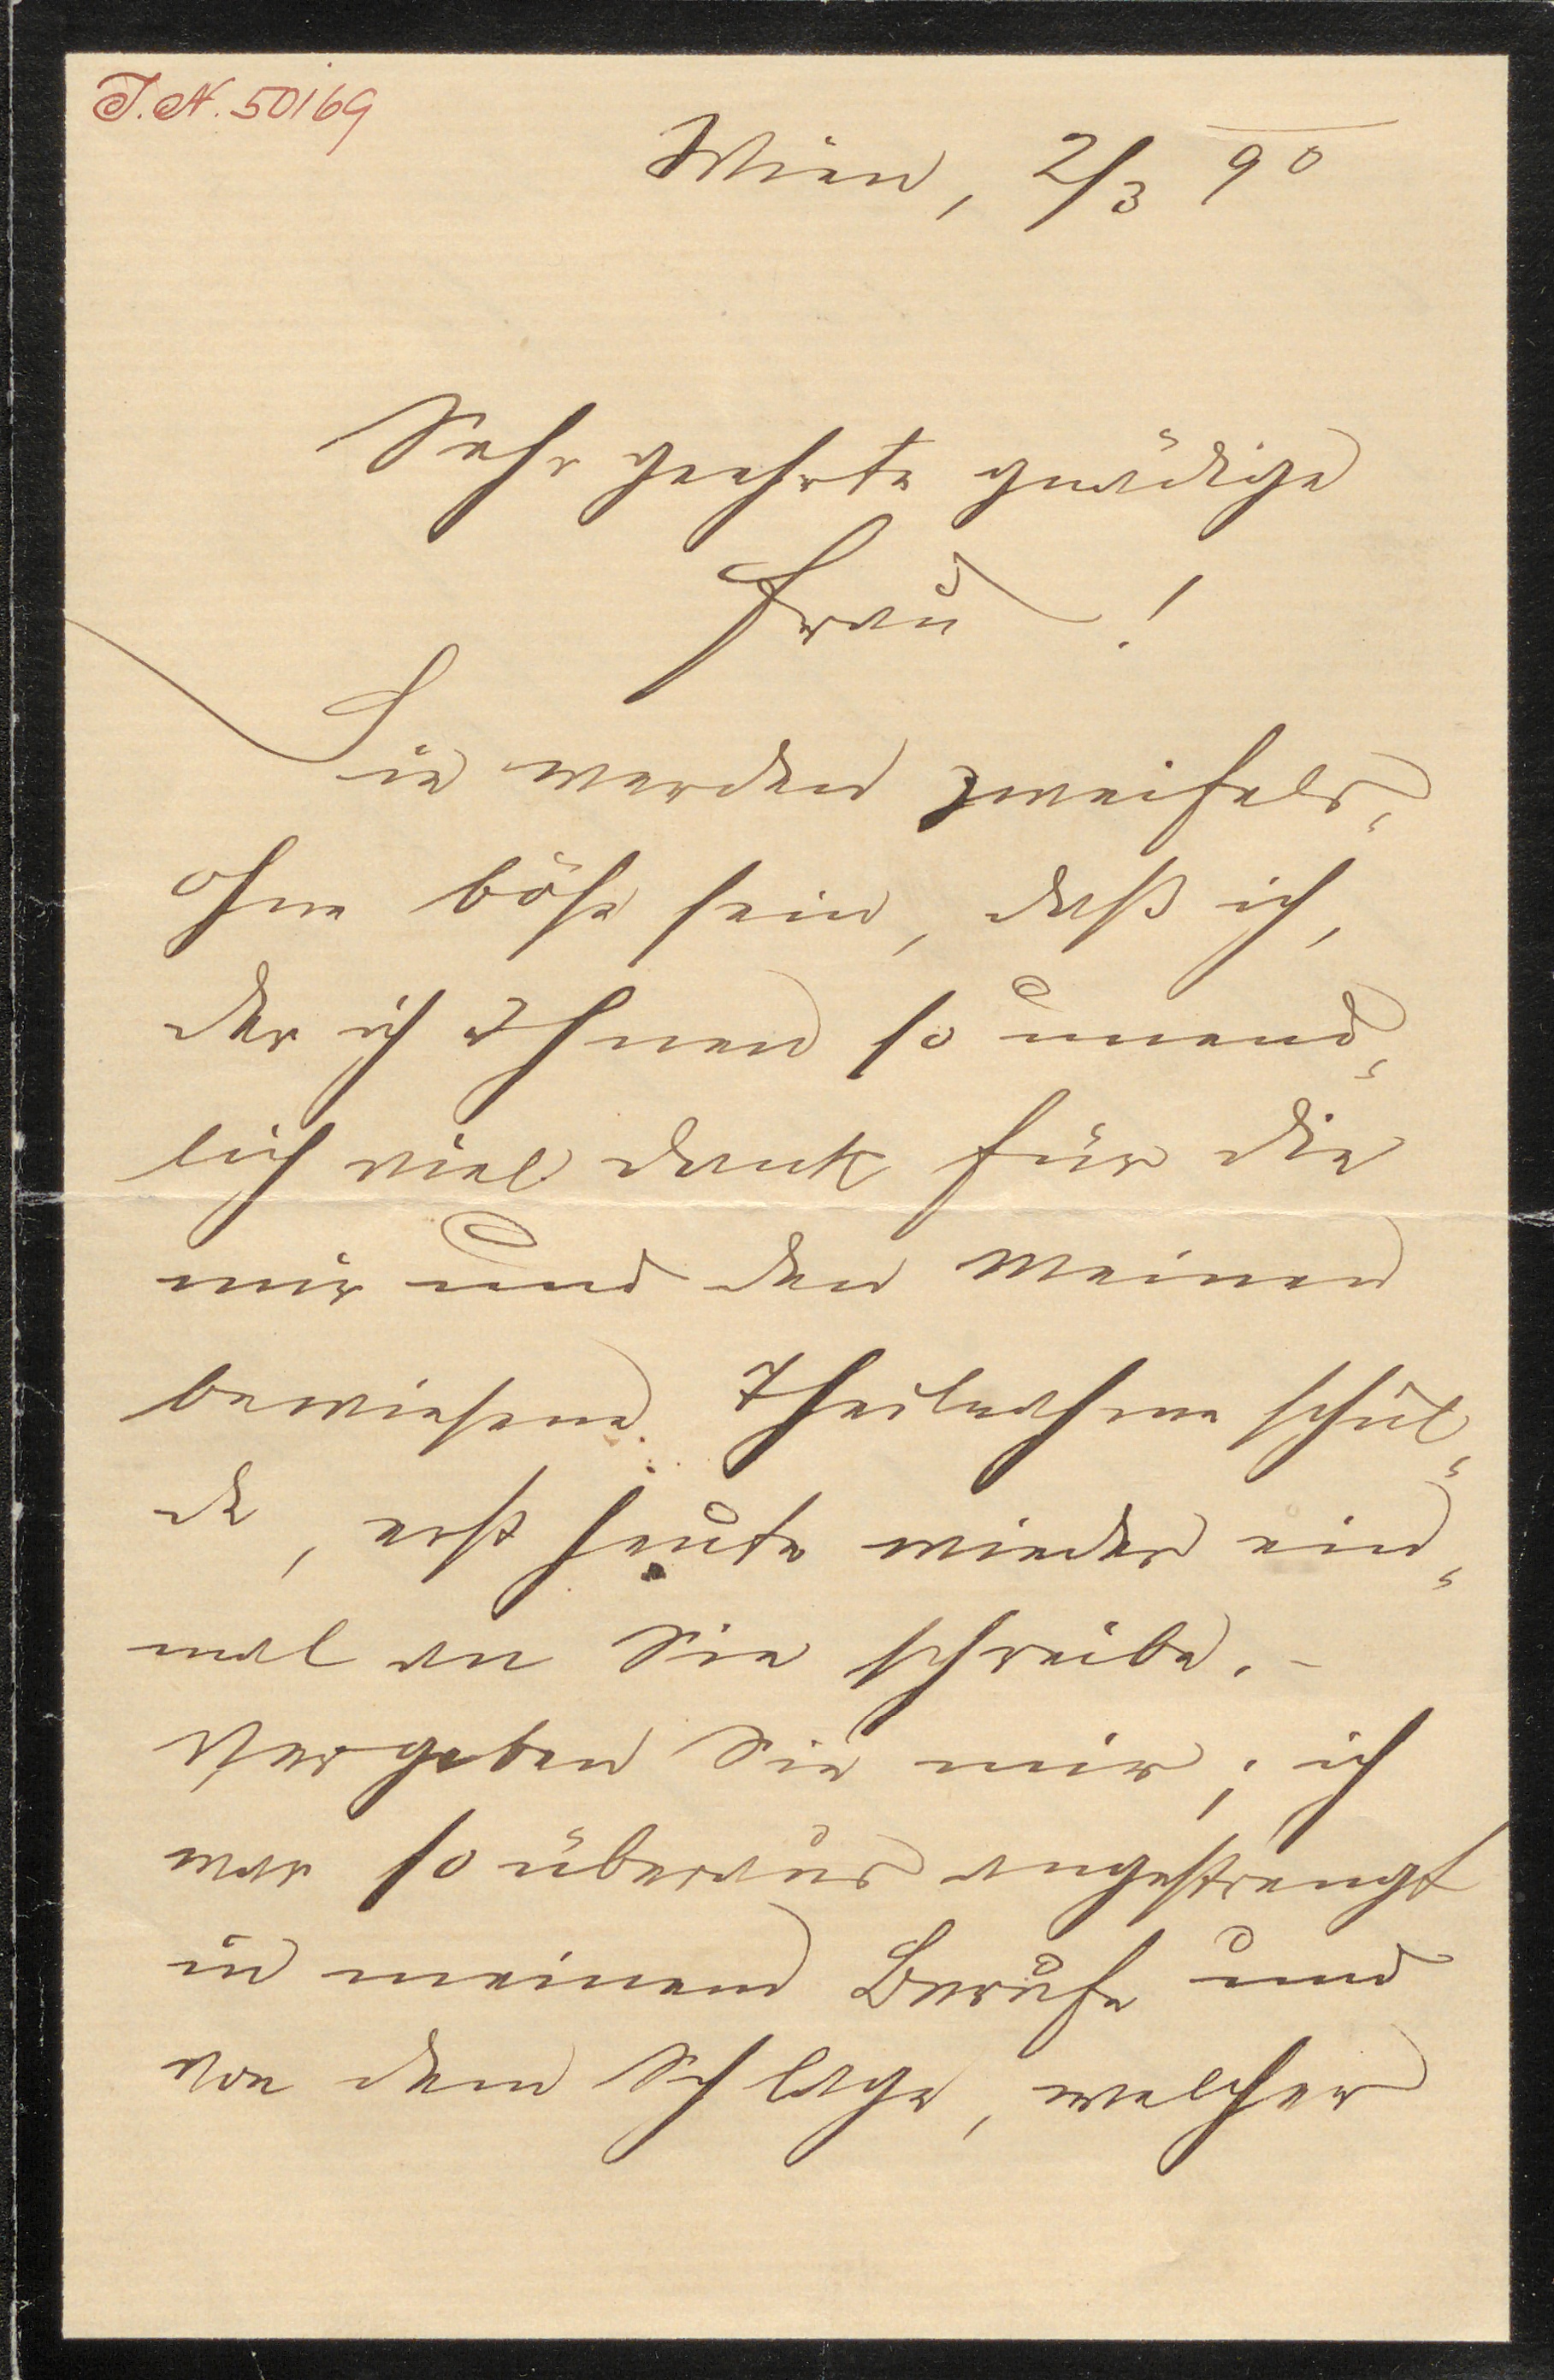 J. N. 50169
Wien, 2/3 90
Sehr geehrte gnädige
Frau !
Sie werden zweifels-
ohne böse sein, daß ich,
der ich Ihnen so unend-
lich viel Dank für die
mir und den Meinen
bewiesene Theilnahme schul-
de, erst heute wieder ein-
mal an Sie schreibe. -
Vergeben Sie mir; ich
war so überaus angestrengt
in meinem Berufe und
von dem Schlage, welcher